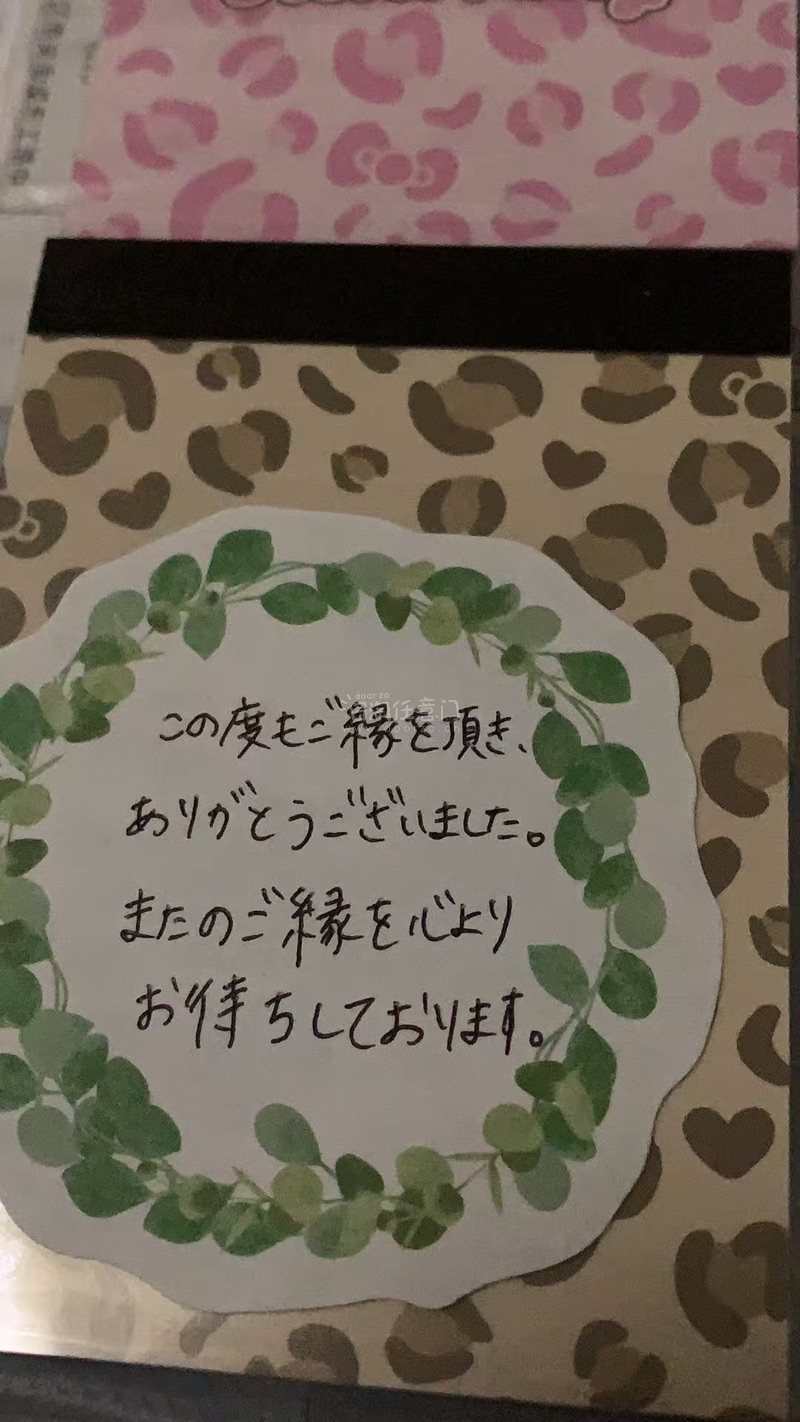 この度もご縁を頂き、
ありがとうございました。
またのご縁を心より
お待ちしております。